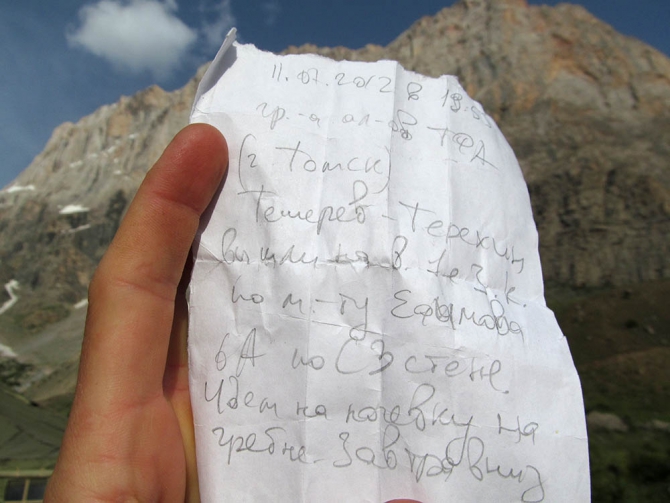 11.07.2012 в 19:05
гр.-а ал-ов ТФА
(г Томск)
Темерев-Терехин
вышли на в. 1е З.К.
по м.-ту Ефимова
6А по СЗ стене.
Идем на ночевку на
гребне. Завтра вниз